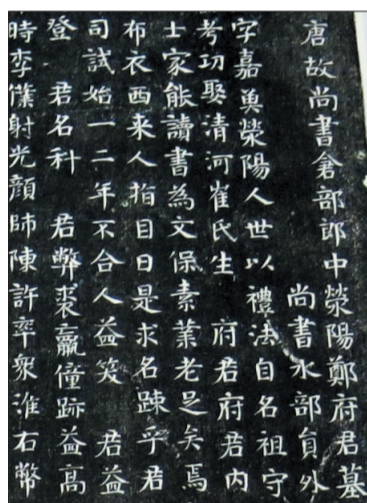 唐故尚書倉部郎中滎陽鄭府君墓
尚書水部員外
字嘉魚滎陽人世以禮法自名祖守
考功娶清河崔氏生 府君府君內
士家能讀書為文保素業老是矣焉
布衣西来人指目曰是求名踈乎君
司試始一二年不合人益笑 君益
登 君名科 君弊裘羸僮跡益高
時李僕射光顔師陳許率衆淮右幣